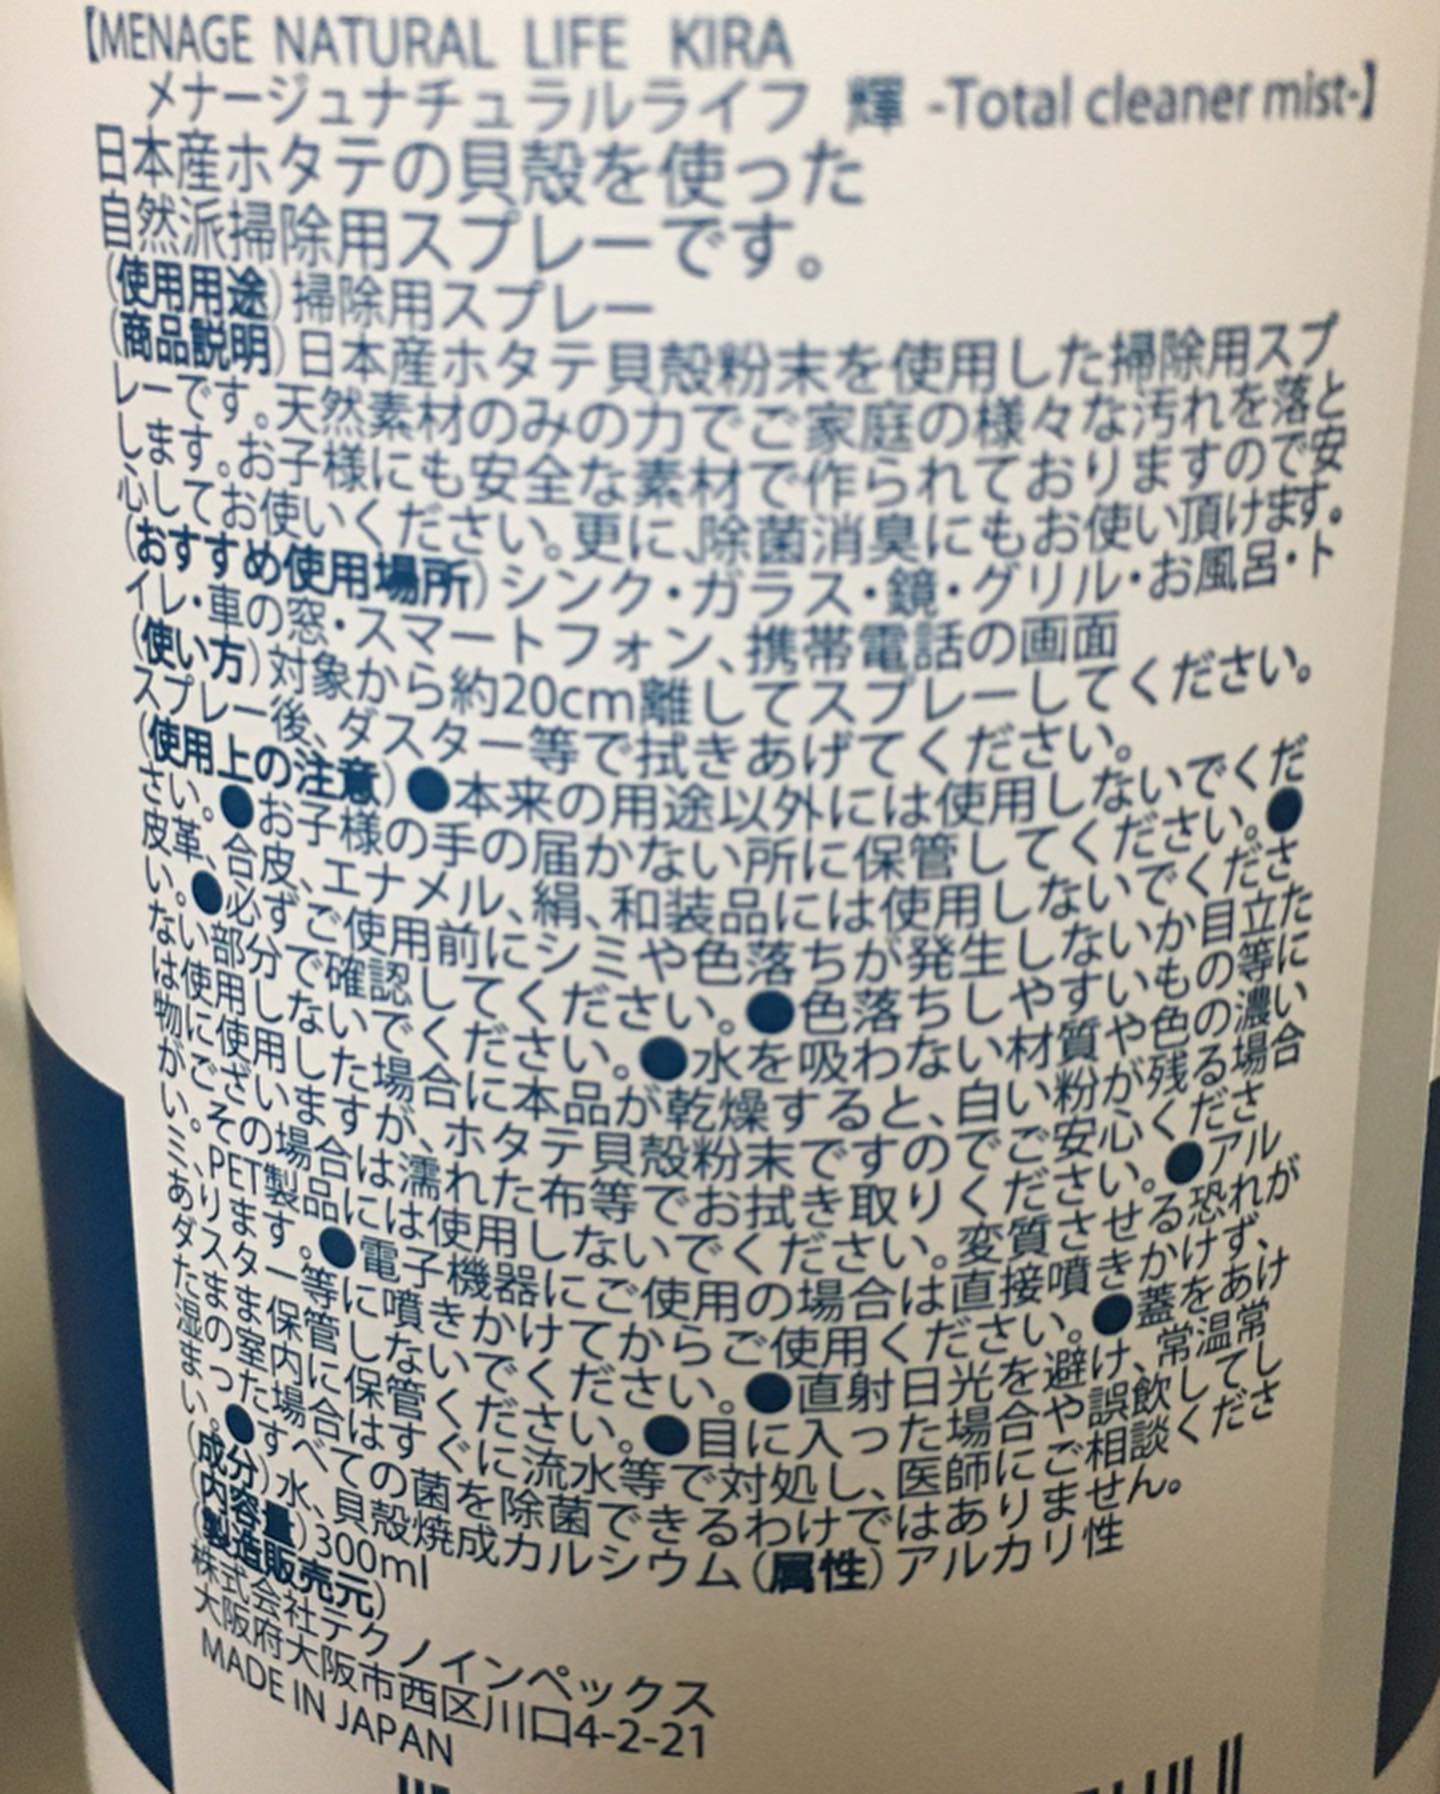 【MENAGE NATURAL LIFE KIRA
メナージュナチュラルライフ 輝 -Total cleaner mist-】
日本産ホタテの貝殻を使った
自然派掃除用スプレーです。
(使用用途)掃除用スプレー
(商品説明)日本産ホタテ貝殻粉末を使用した掃除用スプ
レーです。天然素材のみの力でご家庭の様々な汚れを落と
します。お子様にも安全な素材で作られておりますので安
心してお使いください。更に、除菌消臭にもお使い頂けます。
(おすすめ使用場所)シンク・ガラス・鏡・グリル・お風呂・ト
イレ・車の窓・スマートフォン、携帯電話の画面
(使い方)対象から約20cm離してスプレーしてください。
スプレー後、ダスター等で拭きあげてください。
(使用上の注意)●本来の用途以外には使用しないでくだ
さい。●お子様の手の届かない所に保管してください。●
皮革、合皮、エナメル、絹、和装品には使用しないでくださ
い。●必ずご使用前にシミや色落ちが発生しないか目立た
ない部分で確認してください。●色落ちしやすいもの等に
は使用しないでください。●水を吸わない材質や色の濃い
物に使用した場合に本品が乾燥すると、白い粉が残る場合
がございますが、ホタテ貝殻粉末ですのでご安心くださ
い。その場合は濡れた布等でお拭き取りください。●アル
ミ、PET製品には使用しないでください。変質させる恐れが
あります。●電子機器にご使用の場合は直接噴きかけず、
ダスター等に噴きかけてからご使用ください。●蓋をあけ
たまま保管しないでください。●直射日光を避け、常温常
湿の室内に保管ください。●目に入った場合や誤飲してし
まった場合はすぐに流水等で対処し、医師にご相談くださ
い。●すべての菌を除菌できるわけではありません。
(成分)水、貝殻焼成カルシウム(属性)アルカリ性
(内容量)300ml
(製造販売元)
株式会社テクノインペックス
大阪府大阪市西区川口4-2-21
MADE IN JAPAN